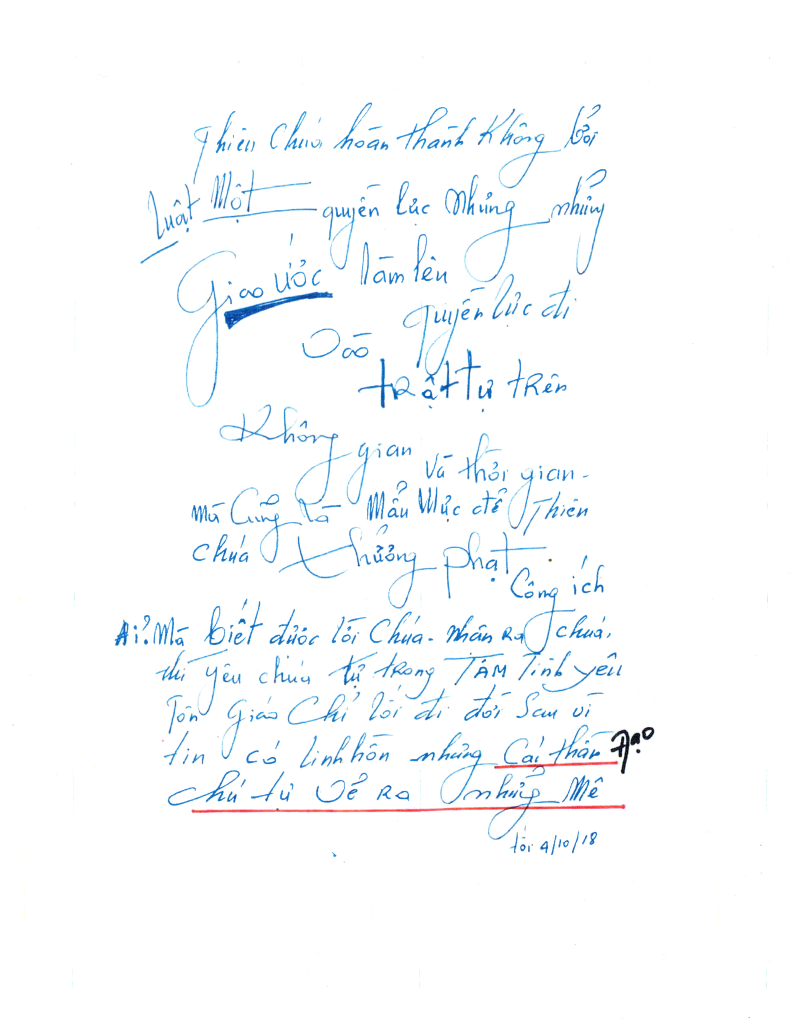 Thiên Chúa hoàn thành Không bởi
Luật Một quyền lực Nhưng những
Giao ước làm lên
quyền lực đi
Vào
trật tự trên
Không gian
Và thời gian -
mà Cũng là Mẫu Mực để Thiên
chúa thưởng phạt.
Công ích
Ai? Mà biết được lời Chúa - nhân ra chúa,
thì yêu chúa từ trong TÂM Tình yêu
Tôn giáo Chỉ lối đi đời sau vì
tin có linh hồn nhưng Cái thần Đạo
chú tự vẽ ra những Mê
tối 4/10/18